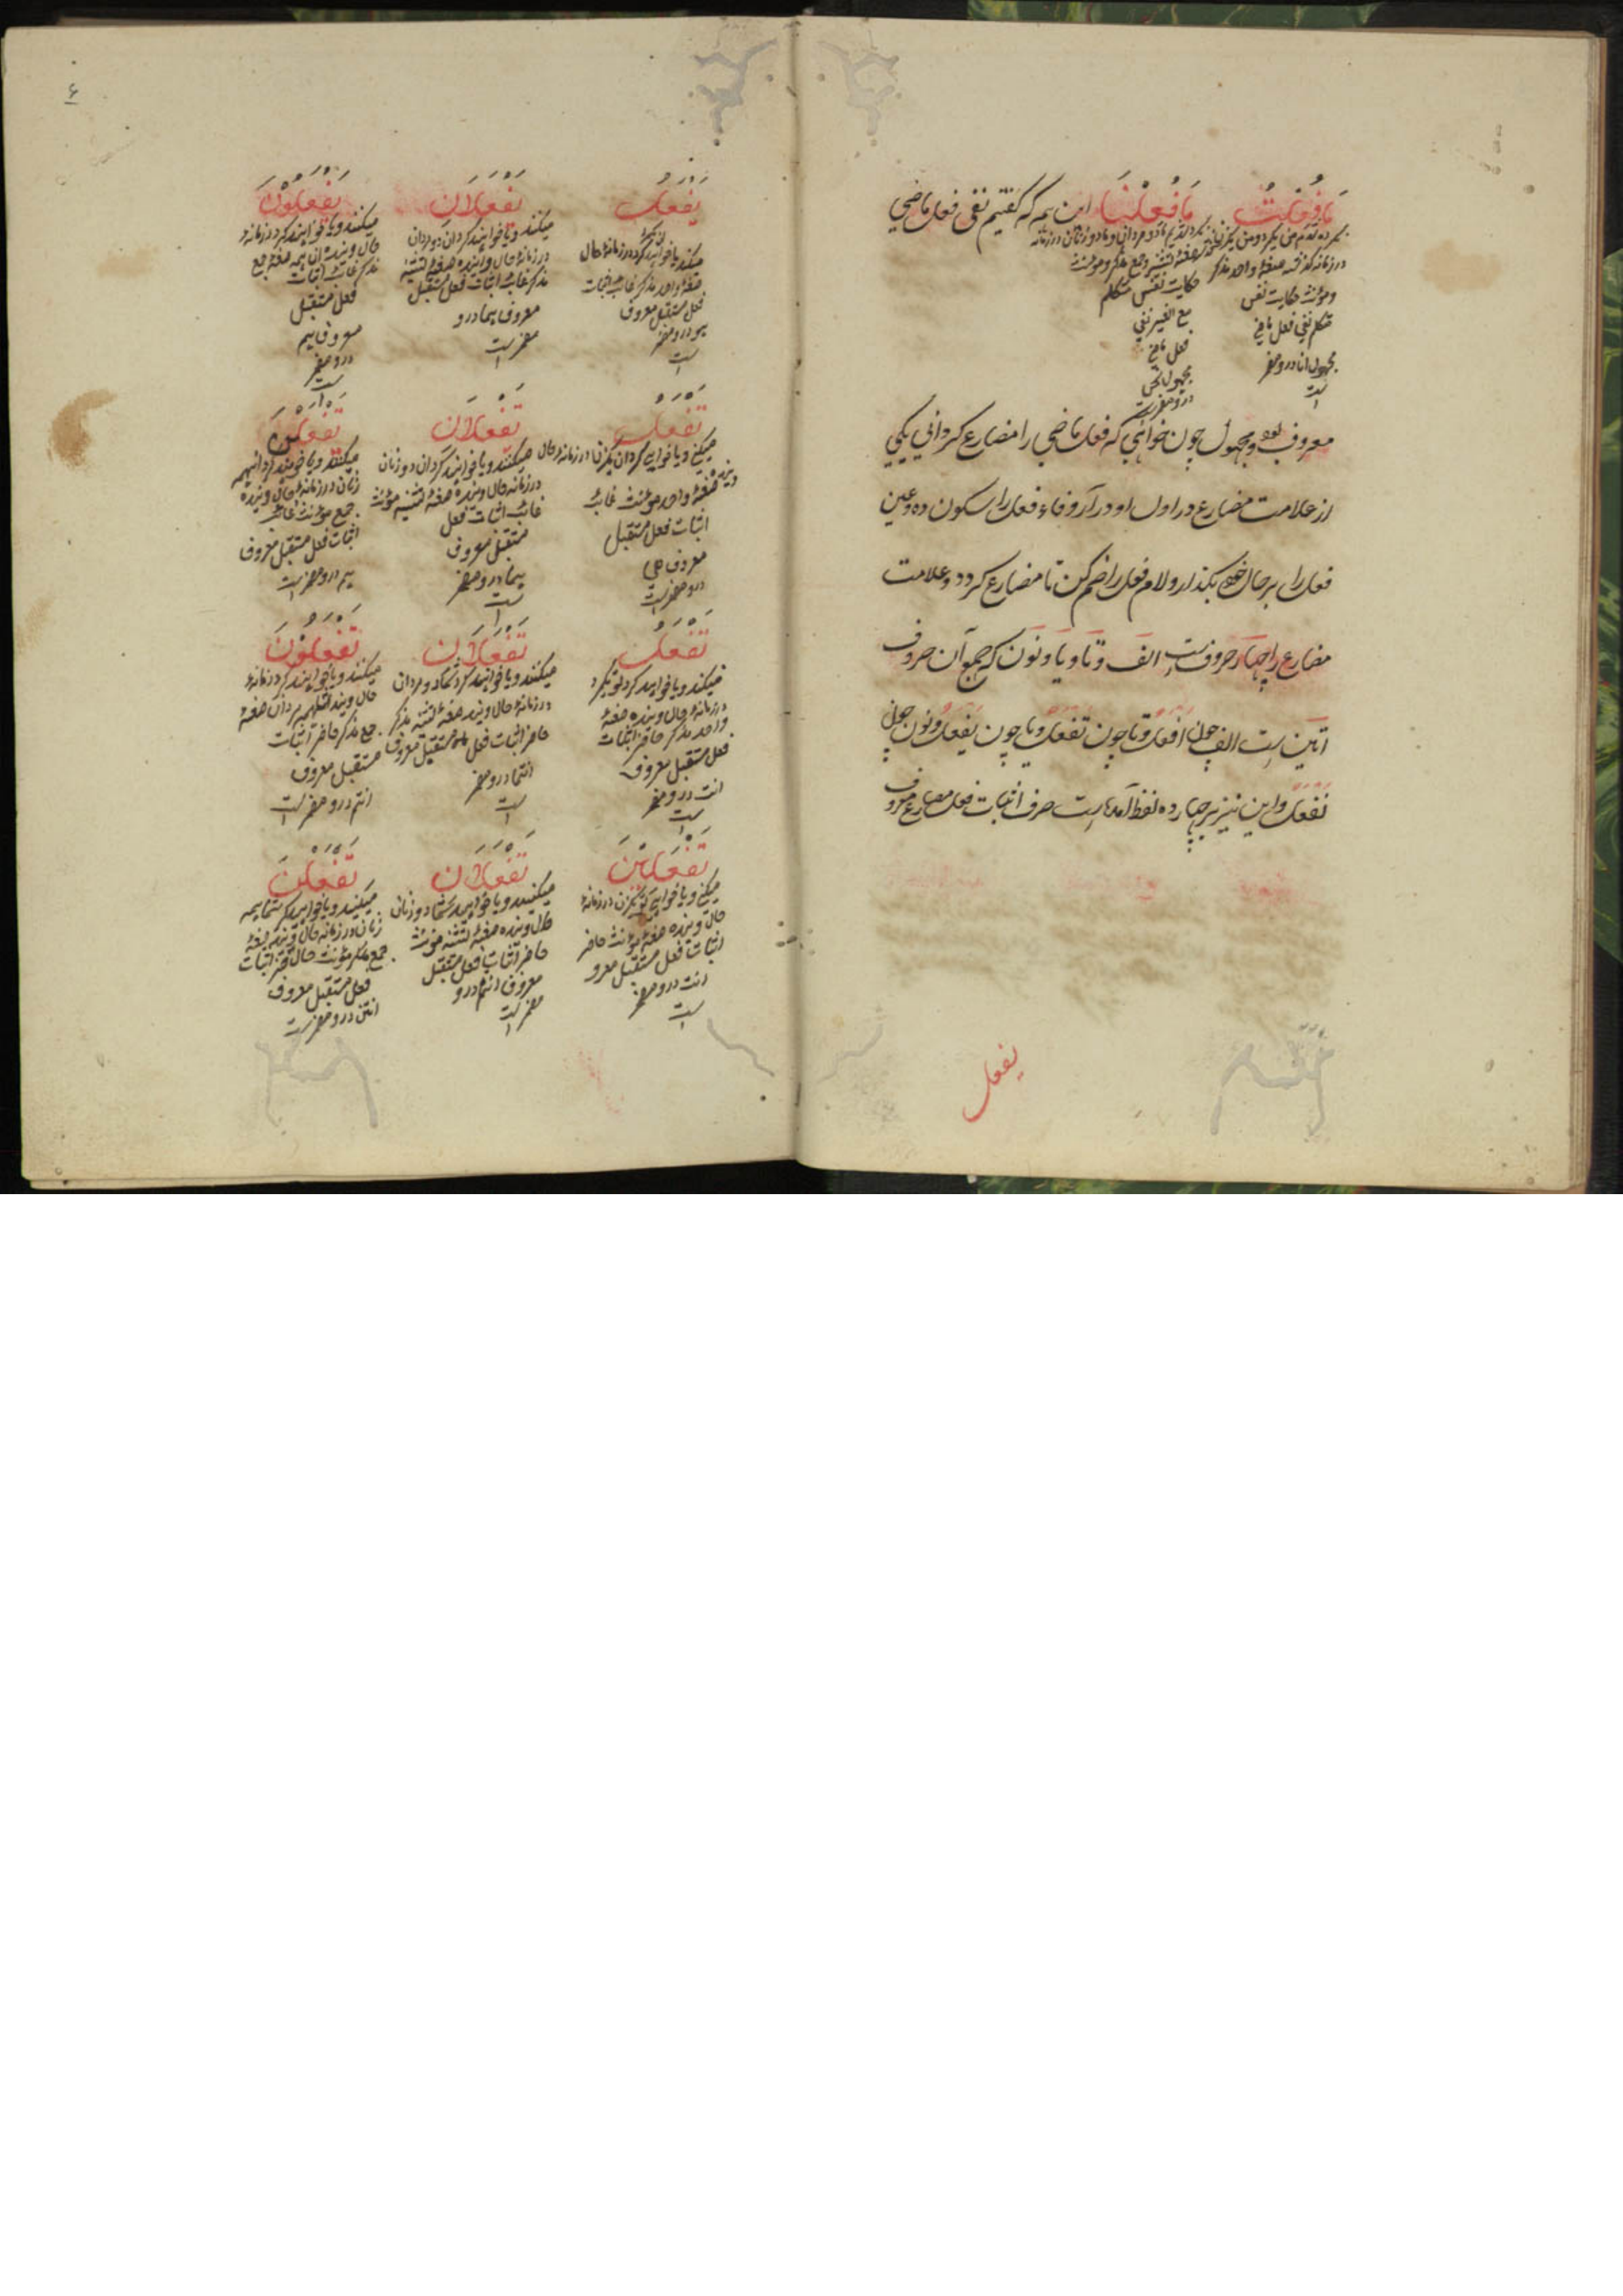 مَا فُعِلْتُ مَا فُعِلْنَا این همه که گفتیم نفی فعل ماضی
در زمانه گذشته صیغهٔ واحد مذکر
ومؤنث حکایت نفس
متکلم نفی فعل ماضی
مجهول انا درو مضمر
است
حکایت نفس متکلم
مع الغیر نفی
فعل ماضی
مجهول نحن
درو مضمرست
معروف بود ومجهول چون خواهی که فعل ماضی را مضارع گردانی یکی
از علامت مضارع در اول او در آر و فاء فعل را سکون ده و عین
فعل را بر حال خود بگذار و لام فعل را ضم کن تا مضارع گردد و علامت
مضارع را چهار حروف است الف و تا و یا و نون که جمع آن حروف
اتین است الف چون افعل و تا چون تفعل و یا چون یفعل و نون چون
نفعل و این نیز بر چهارده لفظ آمده است صرف اثبات فعل مضارع معروف
یفعل
۶
یَفْعَلُ
میکند یا خواهد کرد در زمانهٔ حال
صیغهٔ واحد مذکر غایب اثبات
فعل مستقبل معروف
هو درو مضمر
است
یَفْعَلَانِ
میکنند ویا خواهند کرد آن دو مردان
در زمانهٔ حال و آینده صیغهٔ تثنیه
مذکر غایب اثبات فعل مستقبل
معروف هما درو
مضمر است
یَفْعَلُوْنَ
میکنند ویا خواهند کرد در زمانهٔ
حال وینده آن همه صیغهٔ جمع
مذکر غایب اثبات
فعل مستقبل
معروف هم
درو مضمر
است
تَفْعَلُ
صیغهٔ واحد مؤنث غایب
اثبات فعل مستقبل
معروف هی
درو مضمرست
تَفْعَلَانِ
میکنند ویا خواهند کرد آن دو زنان
در زمانه حال وینده صیغهٔ تثنیه مؤنث
غایب اثبات فعل
مستقبل معروف
هما درو مضمر
است
زنان در زمانهٔ حال وینده
جمع مؤنث غایب
اثبات فعل مستقبل معروف
هم درو مضمرست
تَفْعَلُ
میکند ویا خواهد کرد تو یکمرد
در زمانهٔ حال وینده صیغهٔ
واحد مذکر حاضر اثبات
فعل مستقبل معروف
انت درو مضمر
است
تَفْعَلَانِ
میکنند ویا خواهند کرد شما دو مردان
در زمانهٔ حال وینده صیغهٔ تثنیه مذکر
حاضر اثبات فعل مستقبل معروف
انتما درو مضمر
است
تَفْعَلُوْنَ
میکنند ویا خواهند کرد در زمانهٔ
جمع مذکر حاضر اثبات
مستقبل معروف
انتم درو مضمر است
تَفْعَلِیْنَ
میکنی ویا خواهی کرد تو یکزن در زمانهٔ
حال وینده صیغهٔ مؤنث حاضر
اثبات فعل مستقبل معرو
انت درو مضمر
است
تَفْعَلَانِ
میکنند ویا خواهند کرد شما دو زنان
حال وینده صیغهٔ تثنیه مؤنث
حاضر اثبات فعل مستقبل
معروف انتما درو
مضمر است
تَفْعَلْنَ
میکنند ویا خواهند کرد شما همه
زنان در زمانه حال وینده صیغهٔ
فعل مستقبل معروف
انتن درو مضمر است